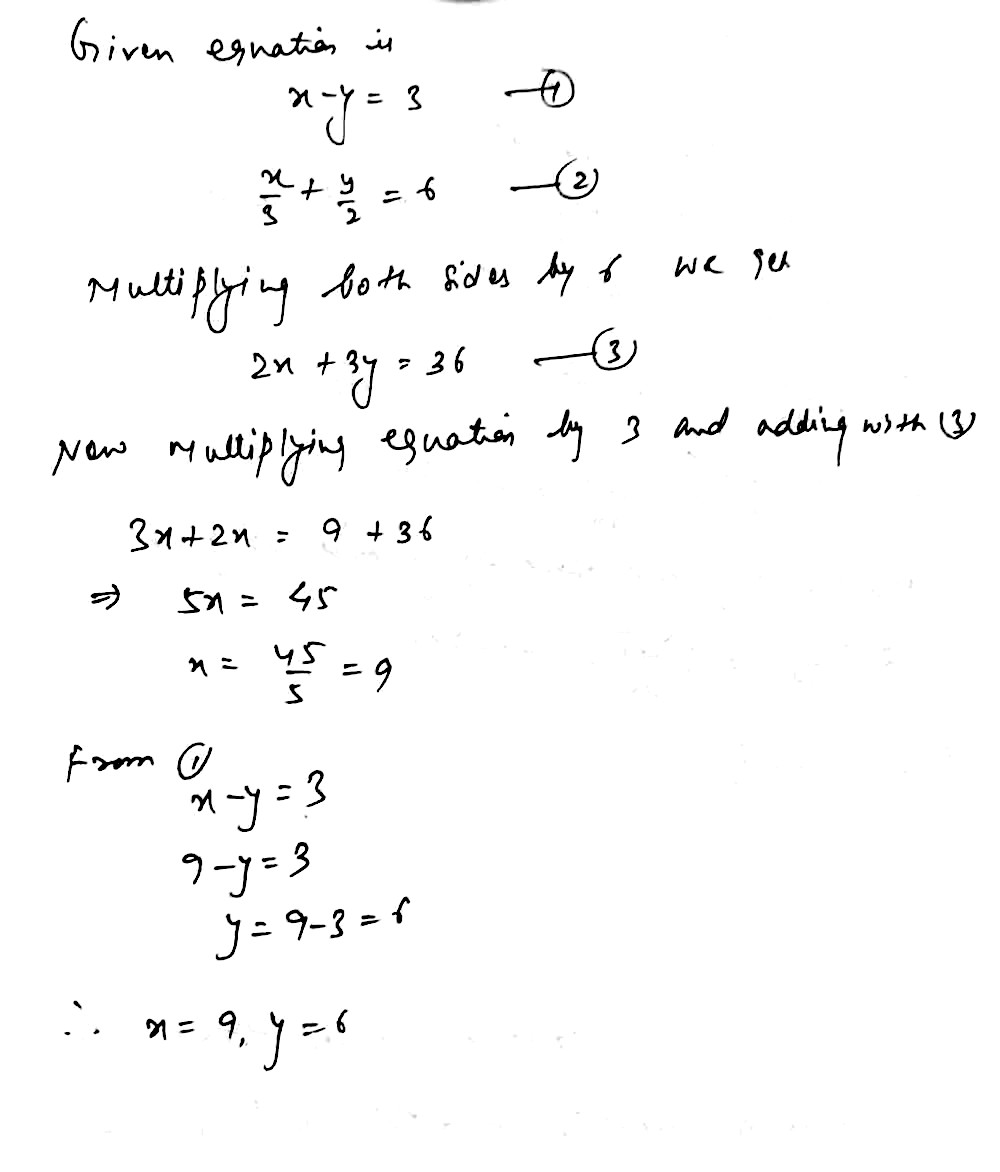 Given equation is
x - y = 3 —①
x/3 + y/2 = 6 —②
Multiplying both sides by 6 we get
2x + 3y = 36 —③
Now Multiplying equation by 3 and adding with ③
3x + 2x = 9 + 36
⇒ 5x = 45
x = 45/5 = 9
From ①
x - y = 3
9 - y = 3
y = 9 - 3 = 6
∴ x = 9, y = 6